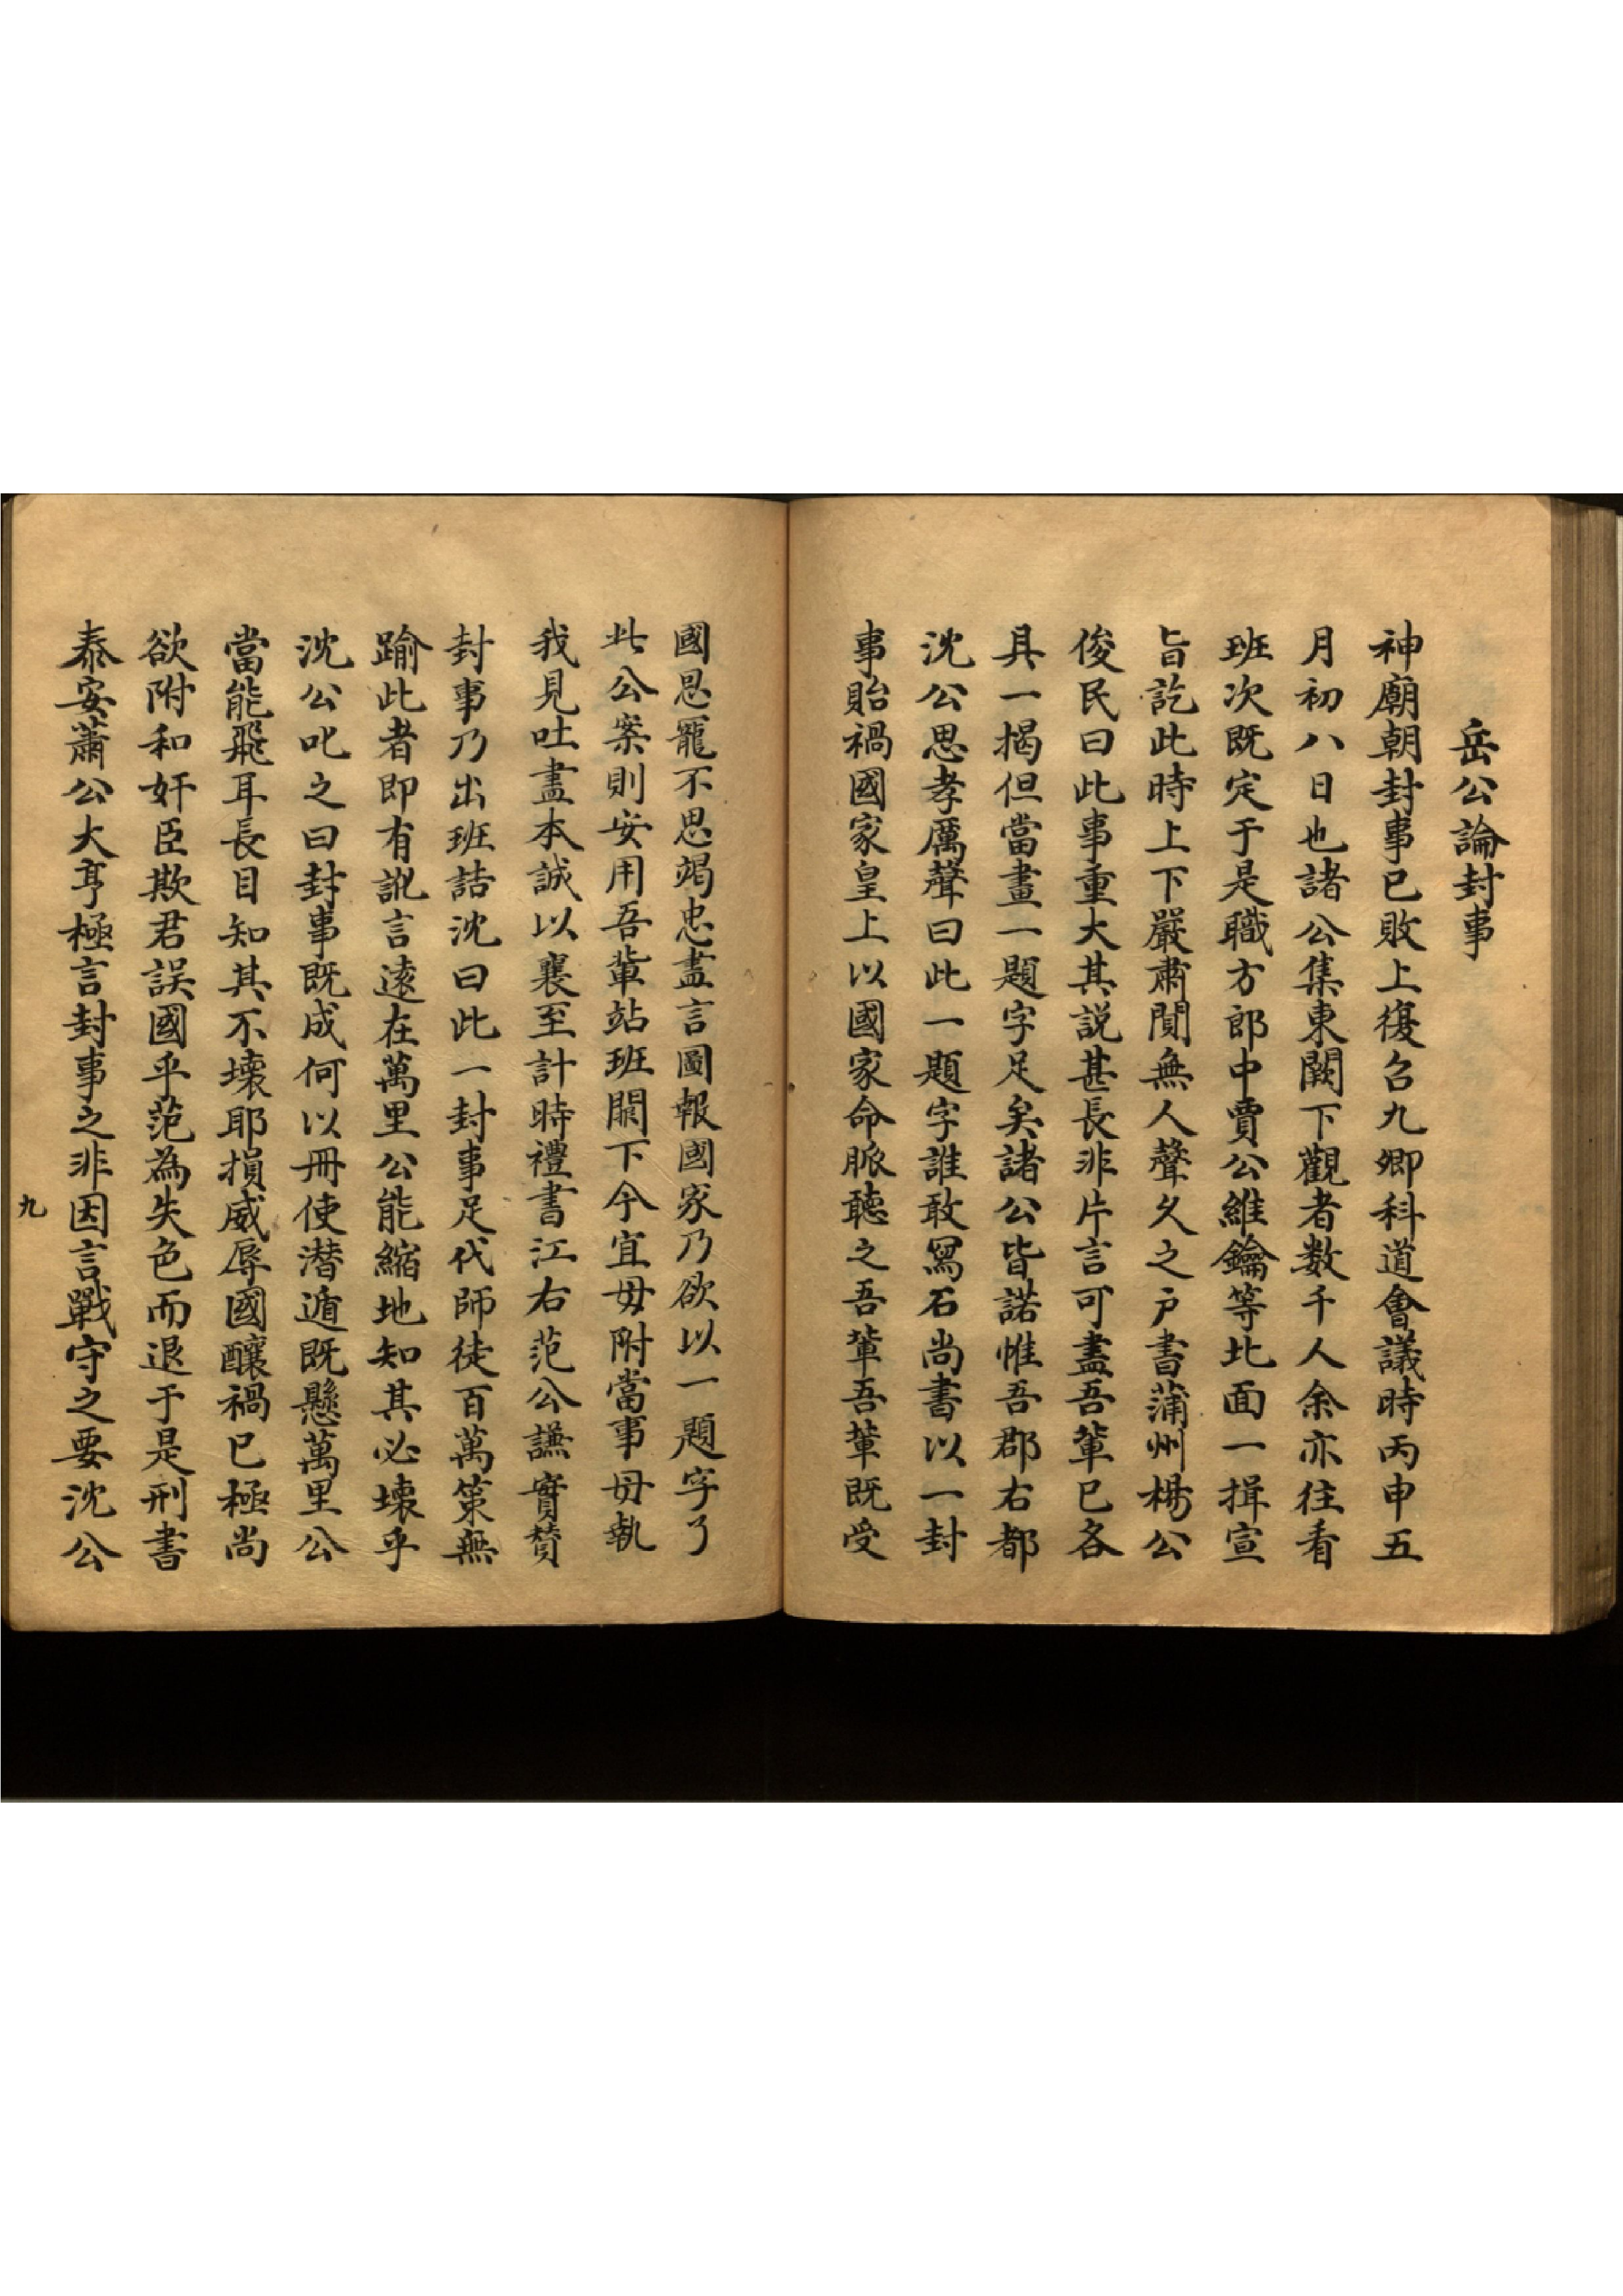 岳公論封事
神廟朝封事已敗上復召九卿科道會議時丙申五
月初八日也諸公集東闕下觀者数千人余亦往看
班次既定于是職方郎中賈公維鑰等北面一揖宣
旨訖此時上下嚴肅閴無人聲久之戶書蒲州楊公
俊民曰此事重大其説甚長非片言可盡吾輩已各
具一揭但當畫一題字足矣諸公皆諾惟吾郡右都
沈公思孝厲聲曰此一題字誰敢冩石尚書以一封
事貽禍國家皇上以國家命脈聽之吾輩吾輩既受
國恩寵不思竭忠盡言圖報國家乃欲以一題字了
此公案則安用吾輩站班闕下今宜毋附當事毋執
我見吐盡本誠以襄至計時禮書江右范公謙實賛
封事乃出班詰沈曰此一封事足代師徒百萬策無
踰此者即有訛言逺在萬里公能縮地知其必壊乎
沈公叱之曰封事既成何以冊使潜遁既懸萬里公
當能飛耳長目知其不壊耶損威辱國釀禍已極尚
欲附和奸臣欺君誤國乎范為失色而退于是刑書
泰安蕭公大亨極言封事之非因言戰守之要沈公
九